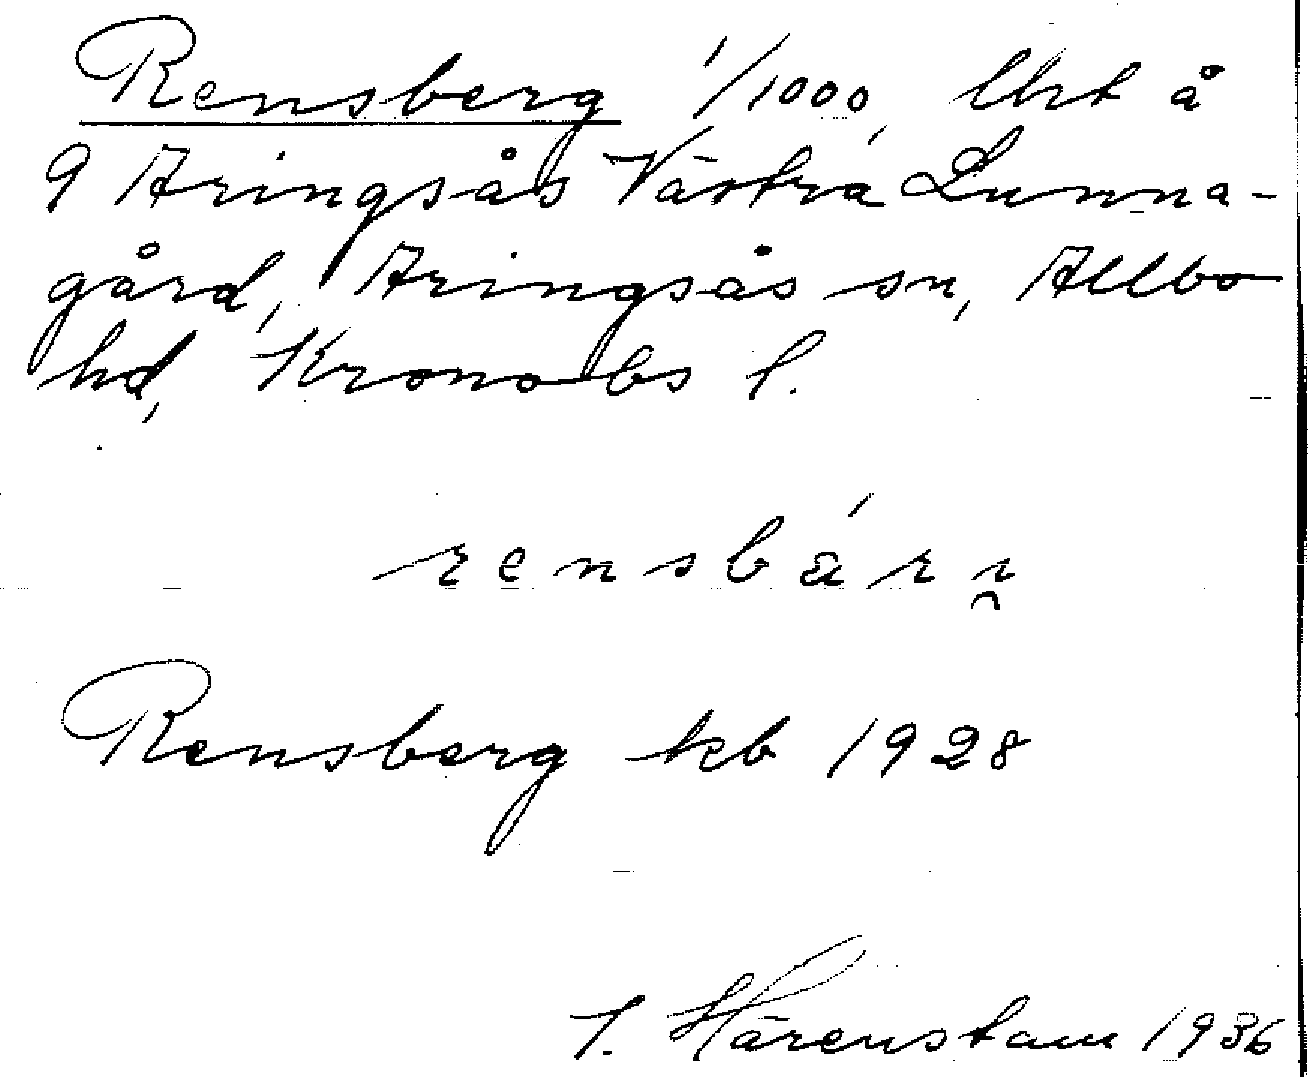 Rensberg 1/1000, Uht å
9 Aringsås Västra Lunna-
gård, Aringsås sn, Allbo
hd, Kronobs l.
rensbár
Rensberg kb 1928
Härenstam 1936